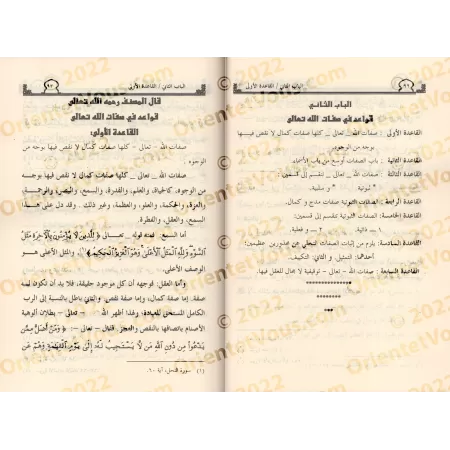 الباب الثاني / القاعدة الأولى
الباب الثاني
قواعد في صفات الله تعالى
القاعدة الأولى : صفات الله ـ تعالى ـ كلها صفات كمال لا نقص فيها
بوجه من الوجوه.
القاعدة الثانية : باب الصفات أوسع من باب الأسماء.
القاعدة الثالثة : صفات الله ـ تعالى ـ تنقسم إلى قسمين :
* ثبوتية * و سلبية.
القاعدة الرابعة : الصفات الثبوتية صفات مدح و كمال.
القاعدة الخامسة: الصفات الثبوتية تنقسم إلى قسمين:
١ ـ ذاتية. ٢ ـ و فعلية.
القاعدة السادسة: يلزم من إثبات الصفات التخلي عن محذورين عظيمين:
أحدهما: التمثيل، و الثاني: التكييف.
القاعدة السابعة : صفات الله ـ تعالى ـ توقيفية لا مجال للعقل فيها.
الباب الثاني / القاعدة الأولى
قال المصنف رحمه الله تعالى
قواعد في صفات الله تعالى
القاعدة الأولى:
صفات الله ـ تعالى ـ كلها صفات كمال لا نقص فيها بوجه من
الوجوه .
صفات الله ـ تعالى ـ كلها صفات كمال، لا نقص فيها بوجه
من الوجوه، كالحياة، والعلم، والقدرة، والسمع، والبصر، والرحمة،
والعزة، والحكمة، والعلو، والعظمة، وغير ذلك. وقد دل على هذا
السمع، والعقل، والفطرة.
أما السمع: فمنه قوله ـ تعالى ـ ﴿لِلَّذِينَ لَا يُؤْمِنُونَ بِالْآخِرَةِ مَثَلُ
السَّوْءِ وَلِلَّهِ الْمَثَلُ الْأَعْلَى وَهُوَ الْعَزِيزُ الْحَكِيمُ﴾(١) والمثل الأعلى هو
الوصف الأعلى.
وأما العقل: فوجهه أن كل موجود حقيقة، فلا بد أن تكون له
صفة. إما صفة كمال، وإما صفة نقص. والثاني باطل بالنسبة إلى الرب
الكامل المستحق للعبادة؛ ولهذا أظهر الله ـ تعالى ـ بطلان ألوهية
الأصنام باتصافها بالنقص والعجز. فقال ـ تعالى ـ: ﴿وَمَنْ أَضَلُّ مِمَّنْ
يَدْعُو مِنْ دُونِ اللَّهِ مَنْ لَا يَسْتَجِيبُ لَهُ إِلَى يَوْمِ الْقِيَامَةِ وَهُمْ عَنْ
(١) سورة النحل، آية ٦٠.
OrientetVous.com © 2022